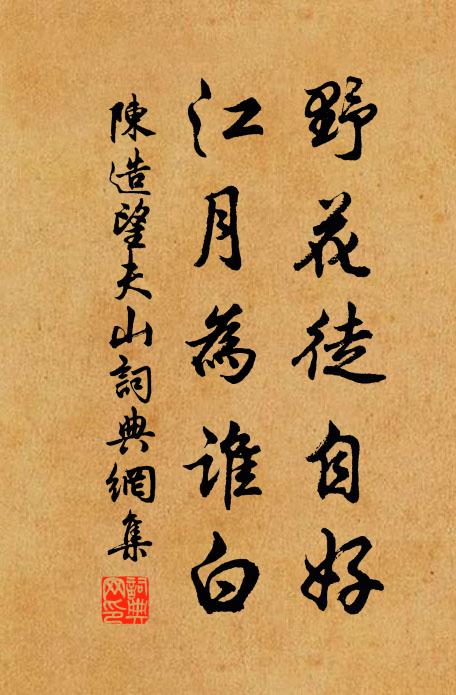 野花徒自好
江月為誰白
陳造望夫山詞典網集
詞典
网印